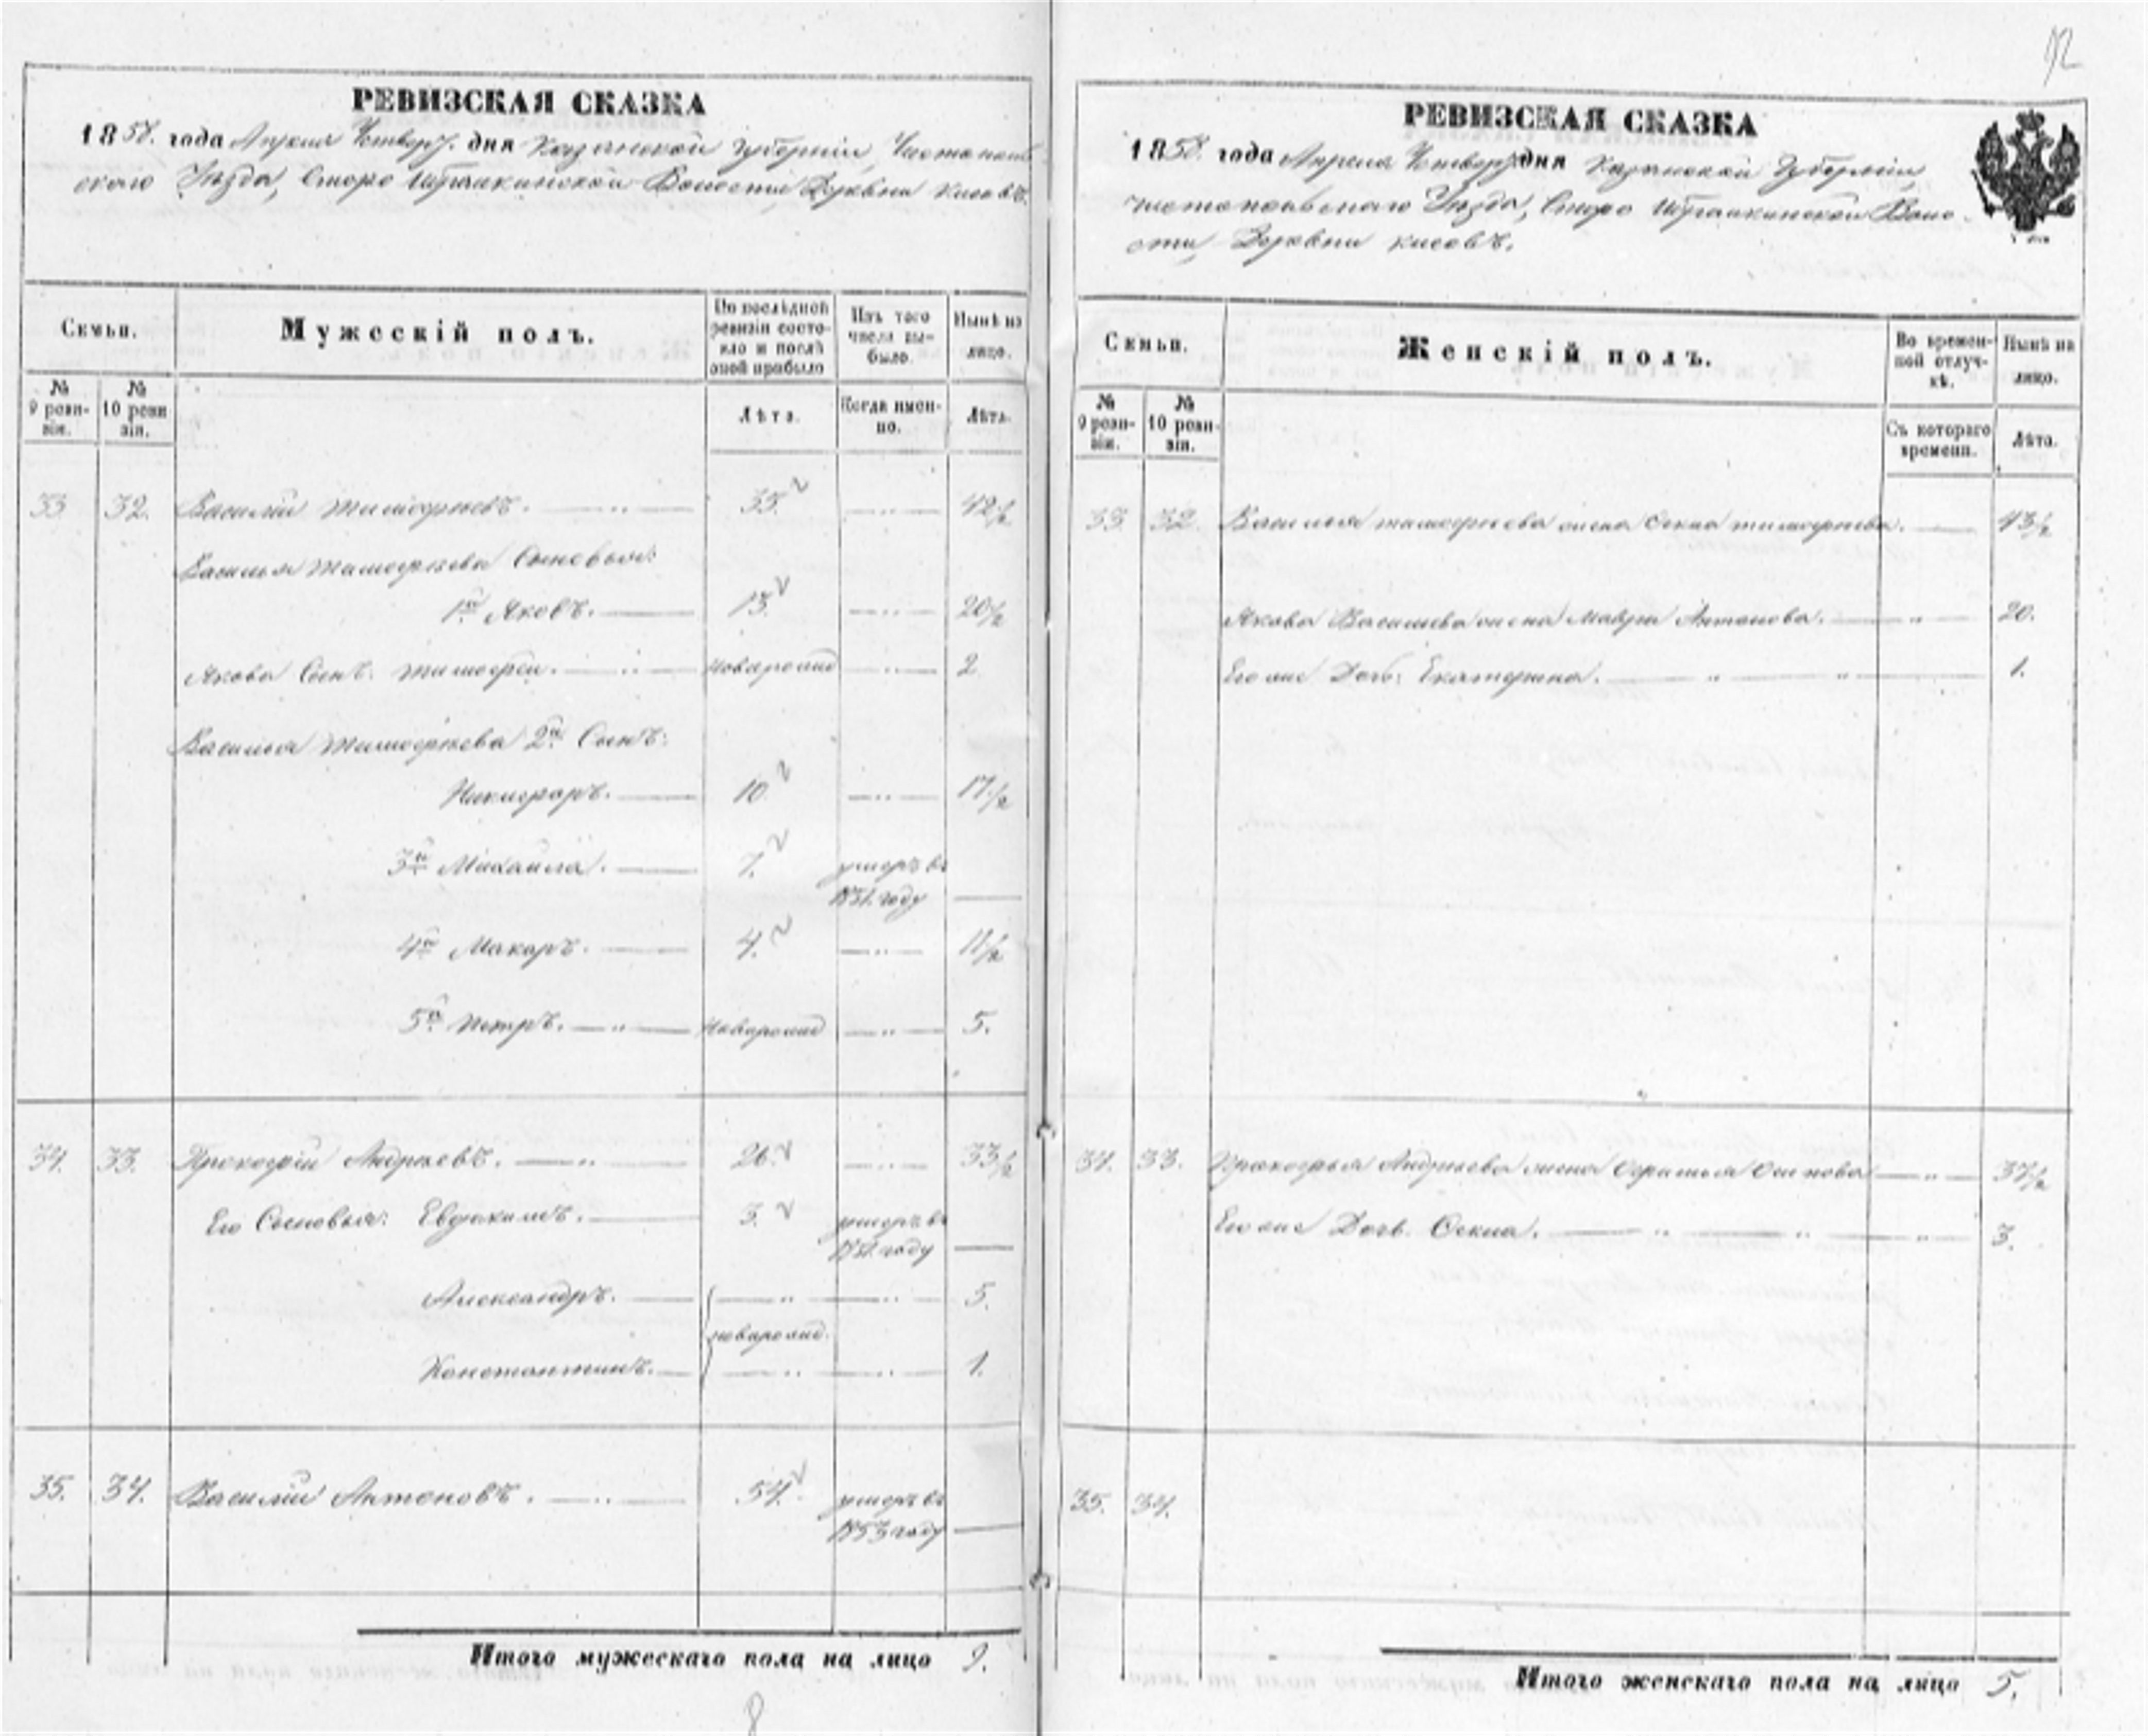 92
РЕВИЗСКАЯ СКАЗКА
1858. года Апреля Четверт. дня Казанской Губерніи, Чистополь-
скаго Уезда, Старо Волости, Деревни Кисовъ.
Семьи.
Мужескій полъ.
По послѣдней ревизіи состо-
яло и послѣ оной прибыло
Изъ того числа вы-
было.
Нынѣ на лицо.
№ 9 реви-
зіи.
№ 10 реви
зіи.
Лѣта.
Когда имен-
но.
Лѣта.
33 32. Василій Тимофѣевъ. 35. 42½
Василья Тимофѣева Сыновья:
1й Яковъ. 13. 20½
Якова Сынъ: Тимофей. новорожд 2
Василья Тимофѣева 2й Сынъ:
Никифоръ. 10. 17½
3й Михайла. 7. умеръ въ
1851. году
4й Макаръ. 4. 11½
5й Петръ. новорожд 5.
34. 33. Прокофій Андрѣевъ. 26. 33½
Его Сыновья: Евдокимъ. 3. умеръ въ
1851. году
Александръ. 5.
новорожд.
Константинъ. 1.
35. 34. Василій Антоновъ. 54. умеръ въ
1853 году
Итого мужескаго пола на лицо 9.
8
РЕВИЗСКАЯ СКАЗКА
1858. года Апреля Четверт дня Казанской Губерніи,
Чистопольскаго Уезда, Старо Воло-
сти, Деревни Кисовъ.
Семьи.
Женскій полъ.
Во времен-
ной отлуч-
кѣ.
Нынѣ на лицо.
№ 9 реви-
зіи.
№ 10 реви-
зіи.
Съ котораго времени.
Лѣта.
33. 32. Василья Тимофѣева жена Тимофѣева. 43½
Якова Васильева жена Мавра Антонова. 20.
Его же Дочь: Екатерина. 1.
34. 33. Прокофья Андрѣева жена Осипова 37½
Его же Дочь 3.
35. 34.
Итого женскаго пола на лицо 5.